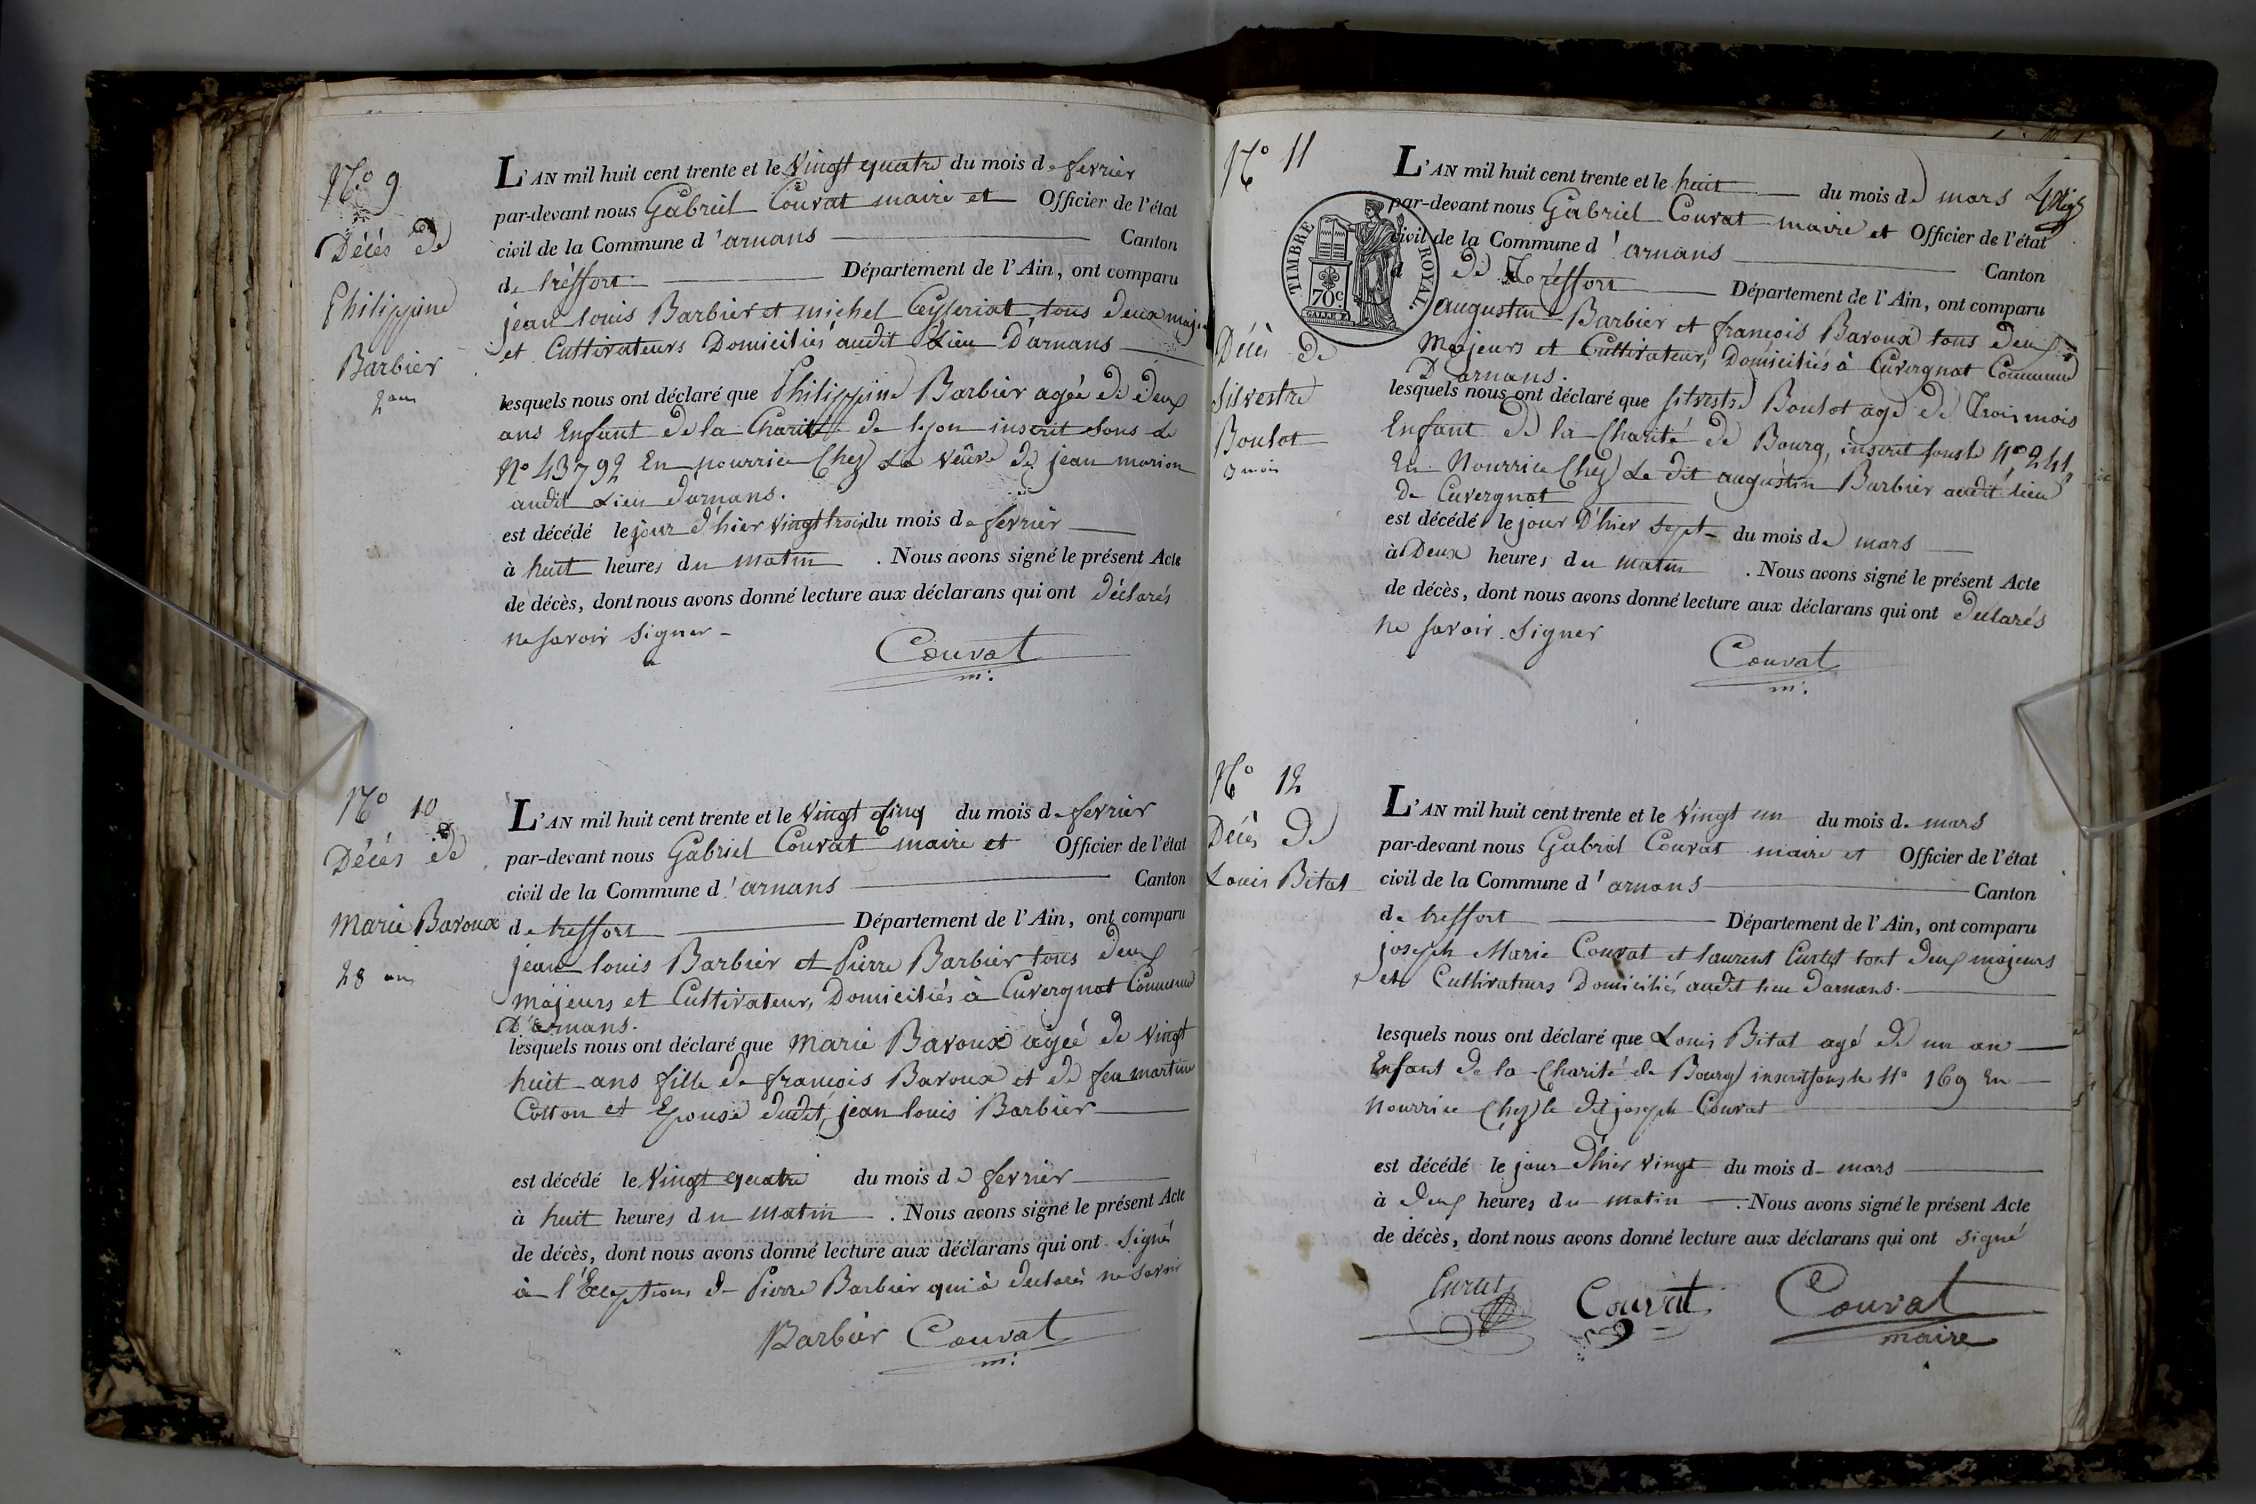 N.o 9
Décés de
Philippine
Barbier
2 ans
L'AN mil huit cent trente et le vingt quatre du mois de fevrier
par-devant nous Gabriel Couvat maire et Officier de l'état
civil de la Commune d'arnans Canton
de treffort Département de l'Ain, ont comparu
jean louis Barbier et michel Ceyseriat tous deux
et Cultivateurs Domiciliés audit Lieu D'arnans
lesquels nous ont déclaré que Philippine Barbier agée de deux
ans Enfant de la Charité de lyon inscrit sous le
N.o 43792 En nourrice Chez La veûve de jean marion
audit Lieu d'arnans.
est décédé le jour d'hier vingt trois du mois de fevrier
à huit heures du matin . Nous avons signé le présent Acte
de décès, dont nous avons donné lecture aux déclarans qui ont déclarés
ne savoir signer
Couvat
m:
N.o 10
Décés de
Marie Baroux
28 ans
L'AN mil huit cent trente et le vingt cinq du mois de fevrier
par-devant nous Gabriel Couvat maire et Officier de l'état
civil de la Commune d'arnans Canton
de treffort Département de l'Ain, ont comparu
jean louis Barbier et Pierre Barbier tous deux
majeurs et Cultivateurs Domiciliés à Cuvergnat Commune
D'arnans.
lesquels nous ont déclaré que Marie Baroux agée de vingt
huit ans fille de françois Baroux et de feu martine
Cotton et Epouse dudit jean louis Barbier
est décédé le vingt quatre du mois de fevrier
à huit heures du matin . Nous avons signé le présent Acte
de décès, dont nous avons donné lecture aux déclarans qui ont signés
à l'Exeption de Pierre Barbier qui à declarés ne savoir
Barbier Couvat
m:
N.o 11
TIMBRE ROYAL.
70c
Décès de
Silvestre
Boulot
3 mois
L'AN mil huit cent trente et le huit du mois de mars
par-devant nous Gabriel Couvat maire et Officier de l'état
civil de la Commune d'arnans Canton
de Tréffort Département de l'Ain, ont comparu
augustin Barbier et francois Baroux tous deux
Majeurs et Cultivateurs, Domiciliés à Cuvergnat Commune
D'arnans.
lesquels nous ont déclaré que silvestre Boulot agé de Trois mois
Enfant de la Charité de Bourg, inscrit sous le N.o 241,
En Nourrice Chez Le dit augustin Barbier audit lieu
de Cuvergnat
est décédé le jour D'hier sept du mois de mars
à Deux heures du matin . Nous avons signé le présent Acte
de décès, dont nous avons donné lecture aux déclarans qui ont declarés
ne savoir signer
Couvat
m:
N.o 12
Décès de
Louis Bitat
L'AN mil huit cent trente et le vingt un du mois de mars
par-devant nous Gabriel Couvat maire et Officier de l'état
civil de la Commune d'arnans Canton
de treffort Département de l'Ain, ont comparu
joseph Marie Couvat et laurent Curtet tout deux majeurs
et Cultivateurs Domiciliés audit lieu d'arnans.
lesquels nous ont déclaré que Louis Bitat agé de un an
Enfant de la Charité de Bourg inscrit sous le N.o 169 En
Nourrice Chez le dit joseph Couvat
est décédé le jour d'hier vingt du mois de mars
à deux heures du matin . Nous avons signé le présent Acte
de décès, dont nous avons donné lecture aux déclarans qui ont signé
Curtet Couvat Couvat
maire